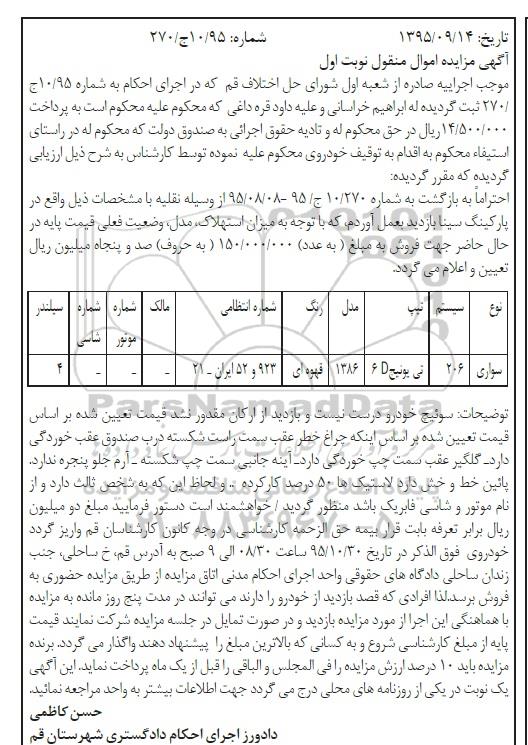 تاریخ: ۱۳۹۵/۰۹/۱۴ شماره: ۱۰/۹۵ج/۲۷۰
آگهی مزایده اموال منقول نوبت اول
موجب اجراییه صادره از شعبه اول شورای حل اختلاف قم که در اجرای احکام به شماره ۱۰/۹۵ج
/۲۷۰ ثبت گردیده له ابراهیم خراسانی و علیه داود قره داغی که محکوم علیه محکوم است به پرداخت
۱۴/۵۰۰/۰۰۰ریال در حق محکوم له و تادیه حقوق اجرائی به صندوق دولت که محکوم له در راستای
استیفاء محکوم به اقدام به توقیف خودروی محکوم علیه نموده توسط کارشناس به شرح ذیل ارزیابی
گردیده که مقرر گردید:
احتراماً به بازگشت به شماره ۱۰/۲۷۰ ج/ ۹۵ -۹۵/۰۸/۰۸ از وسیله نقلیه با مشخصات ذیل واقع در
پارکینگ سینا بازدید بعمل آوردم، که با توجه به میزان استهلاک، مدل، وضعیت فعلی قیمت پایه در
حال حاضر جهت فروش به مبلغ ( به عدد) ۱۵۰/۰۰۰/۰۰۰ ( به حروف) صد و پنجاه میلیون ریال
تعیین و اعلام می گردد.
نوع سیستم تیپ مدل رنگ شماره انتظامی مالک شماره موتور شماره شاسی سیلندر
سواری ۲۰۶ تی یونیج۶ D ۱۳۸۶ قهوه ای ۹۲۳ و ۵۲ ایران ـ ۲۱ - - - ۴
توضیحات: سوئیچ خودرو درست نیست و بازدید از ارکان مقدور نشد قیمت تعیین شده بر اساس
قیمت تعیین شده بر اساس اینکه چراغ خطر عقب سمت راست شکسته درب صندوق عقب خوردگی
دارد. گلگیر عقب سمت چپ خوردگی دارد. آینه جانبی سمت چپ شکسته ـ آرم جلو پنجره ندارد.
پائین خط و خش دارد لاستیک ها ۵۰ درصد کارکرده .. و لحاظ این که به شخص ثالث دارد و از
نام موتور و شاسی فابریک باشد منظور گردید / خواهشمند است دستور فرمایید مبلغ دو میلیون
ریال برابر تعرفه بابت قرار بیمه حق الزحمه کارشناسی در وجه کانون کارشناسان قم واریز گردد
خودروی فوق الذکر در تاریخ ۹۵/۱۰/۳۰ ساعت ۰۸/۳۰ الی ۹ صبح به آدرس قم، خ ساحلی، جنب
زندان ساحلی دادگاه های حقوقی واحد اجرای احکام مدنی اتاق مزایده از طریق مزایده حضوری به
فروش برسد.لذا افرادی که قصد بازدید از خودرو را دارند می توانند در مدت پنج روز مانده به مزایده
با هماهنگی این اجرا از مورد مزایده بازدید و در صورت تمایل در جلسه مزایده شرکت نمایند قیمت
پایه از مبلغ کارشناسی شروع و به کسانی که بالاترین مبلغ را پیشنهاد دهند واگذار می گردد. برنده
مزایده باید ۱۰ درصد ارزش مزایده را فی المجلس و الباقی را قبل از یک ماه پرداخت نماید. این آگهی
یک نوبت در یکی از روزنامه های محلی درج می گردد جهت اطلاعات بیشتر به واحد مراجعه نمائید.
حسن کاظمی
دادورز اجرای احکام دادگستری شهرستان قم
ParsNamadData